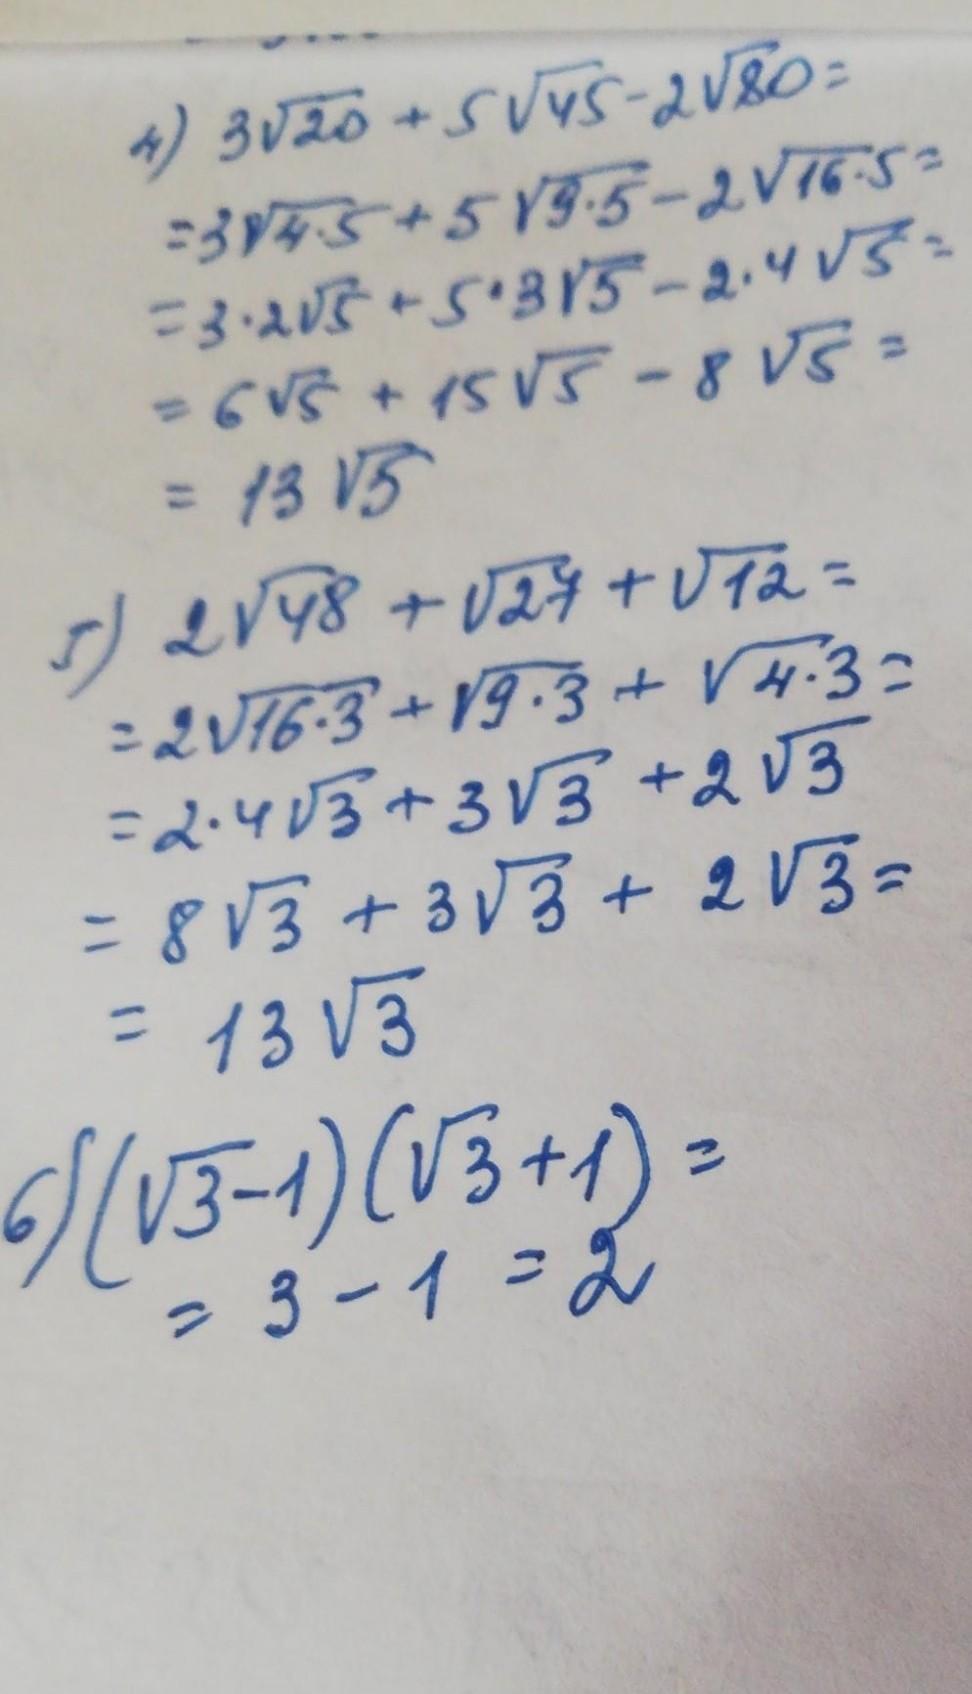 4) 3√20 + 5√45 - 2√80 =
= 3√4·5 + 5√9·5 - 2√16·5 =
= 3·2√5 + 5·3√5 - 2·4√5 =
= 6√5 + 15√5 - 8√5 =
= 13√5
5) 2√48 + √27 + √12 =
= 2√16·3 + √9·3 + √4·3 =
= 2·4√3 + 3√3 + 2√3
= 8√3 + 3√3 + 2√3 =
= 13√3
6) (√3-1)(√3+1) =
= 3 - 1 = 2